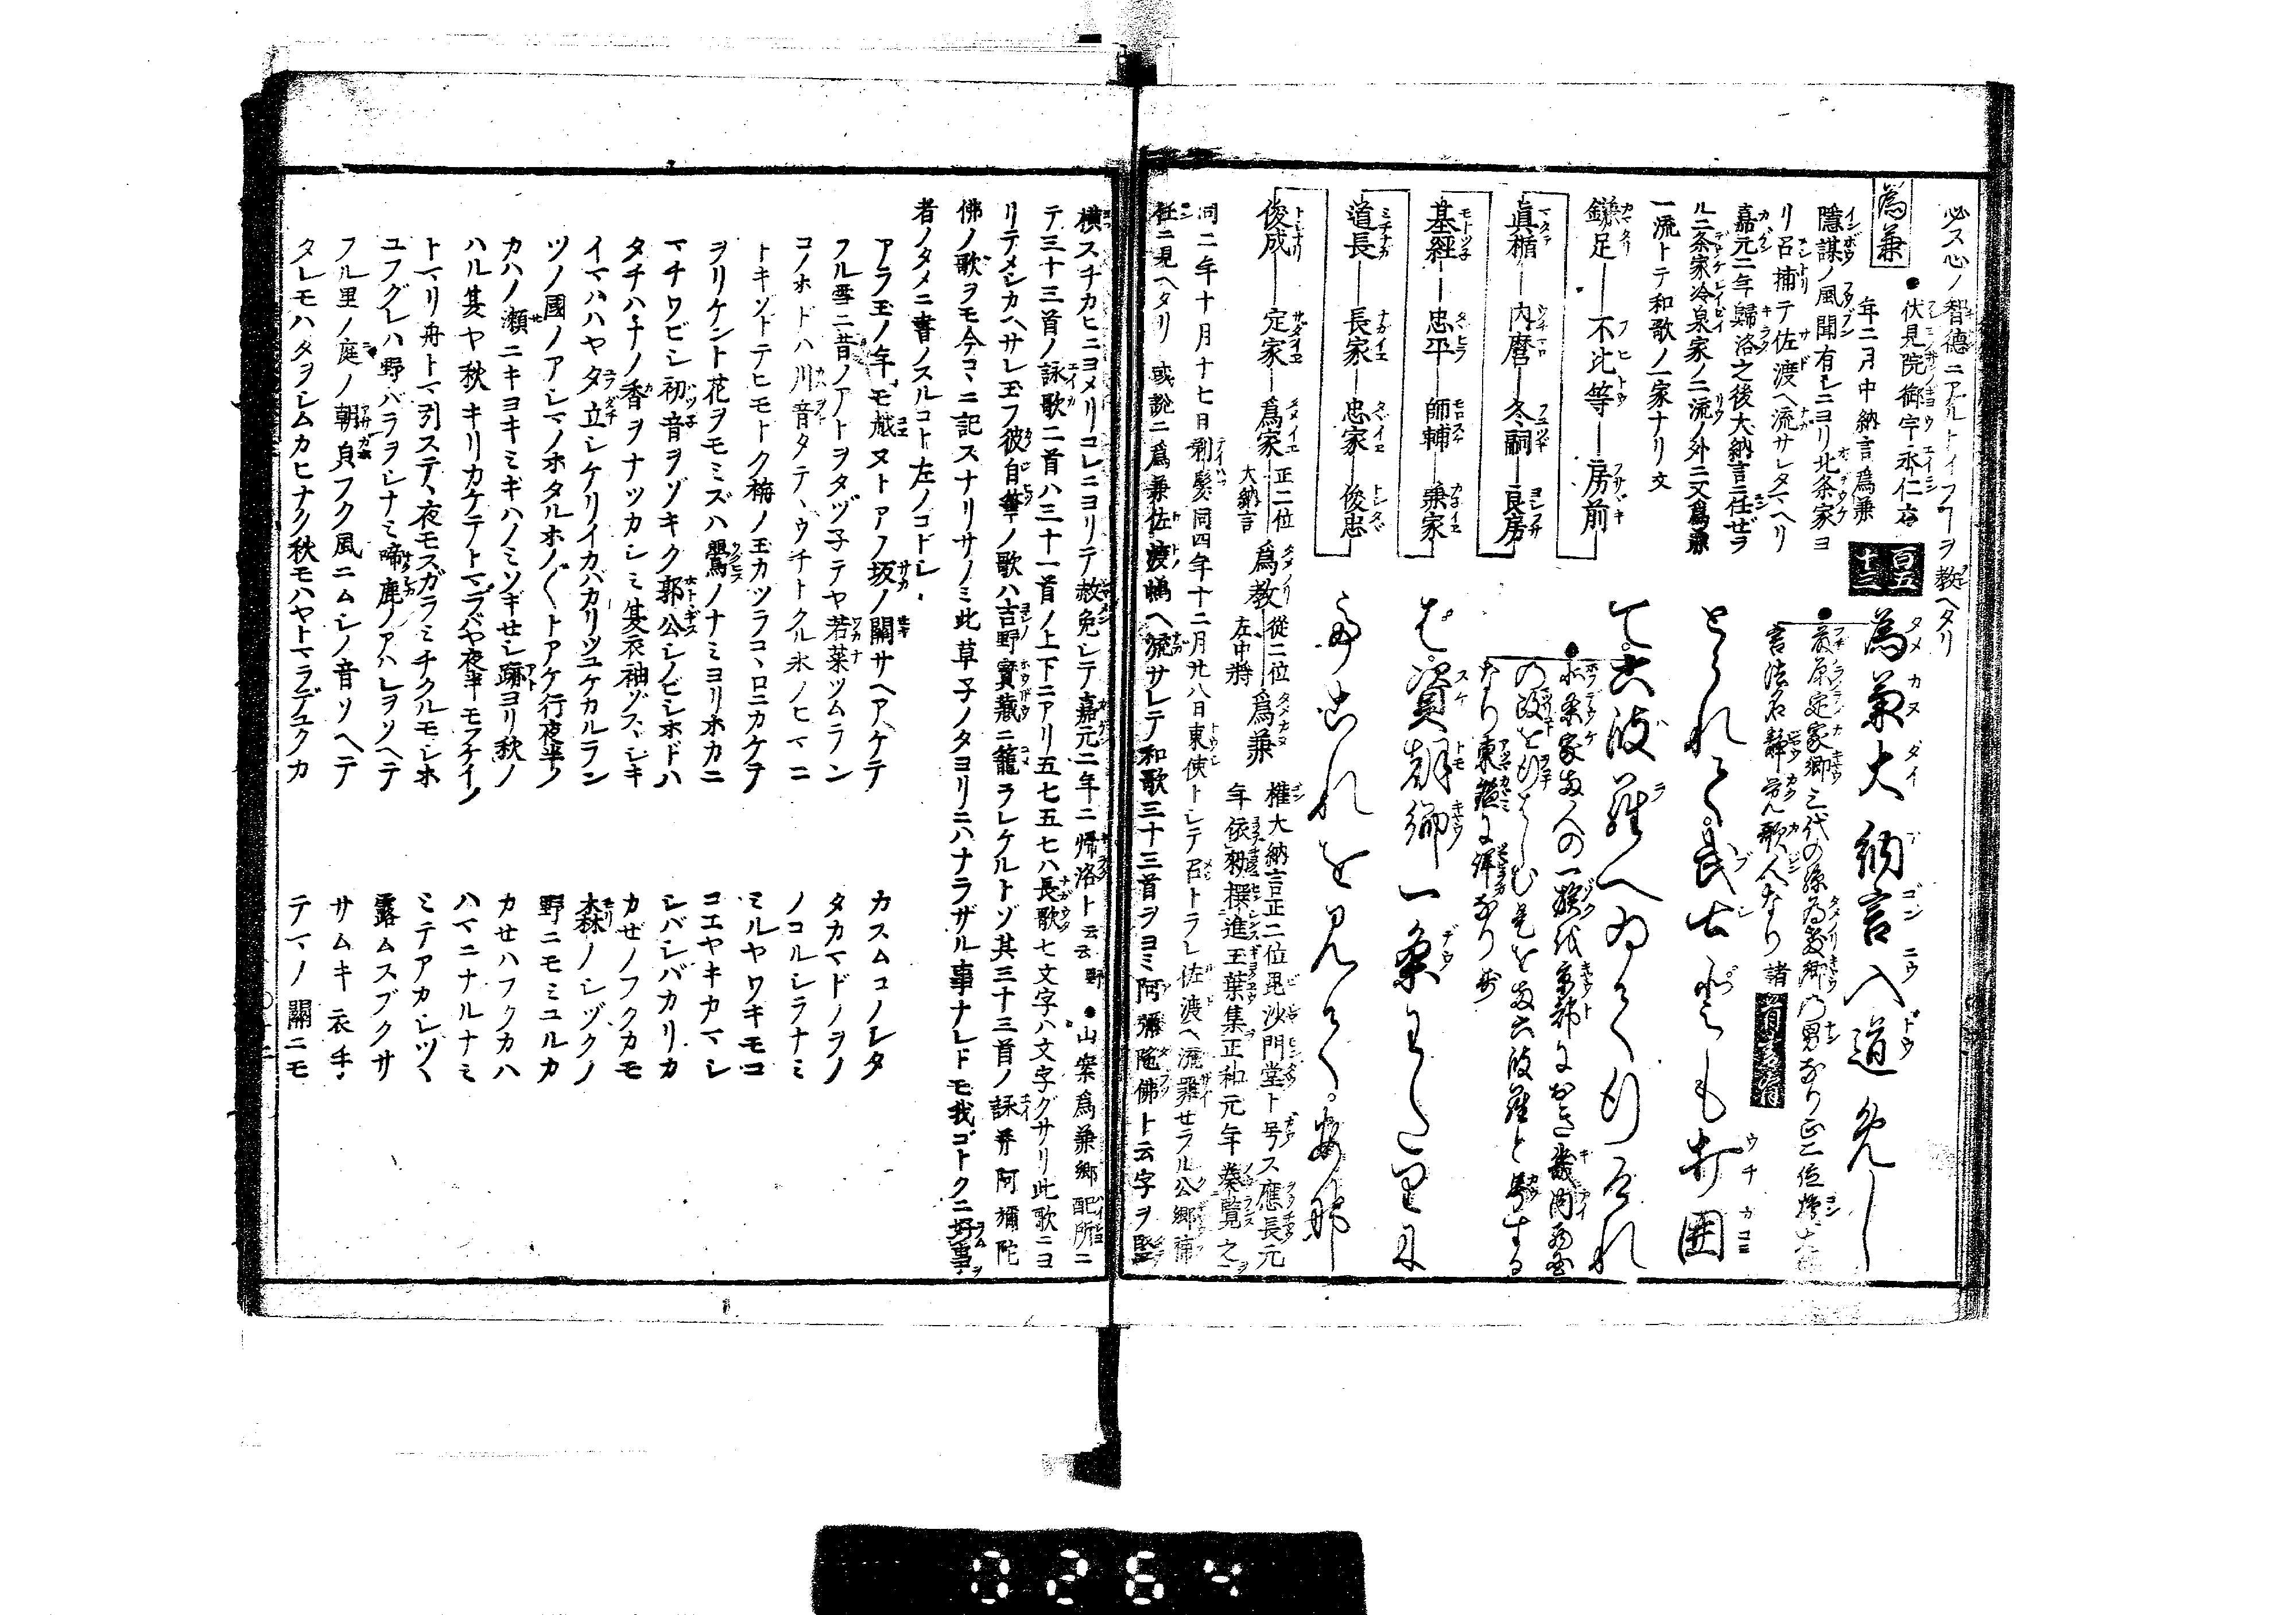 必ス心ノ智德ニアルトイフヿヲ教ヘタリ
為兼
●伏見院御宇永仁六
年二月中納言爲兼
隱謀ノ風聞有シニヨリ北条家ヨ
リ召捕テ佐渡ヘ流サレタマヘリ
嘉元二年歸洛之後大納言ニ任ゼラ
ル二条家冷泉家ノ二流ノ外ニ又爲兼
一流トテ和歌ノ一家ナリ文
鎌足―不比等―房前
眞楯―内麿―冬嗣―良房
基經―忠平―師輔―兼家
道長―長家―忠家―俊忠
俊成―定家―爲家 正二位大納言―爲教 從二位左中将―爲兼
權大納言正二位毘沙門堂ト号ス應長元
年依勅撰進玉葉集正和元年奏覧之
同二年十月十七日剃髮同四年十二月廿八日東使トシテ召トラレ佐渡ヘ流罪セラル公卿補
任ニ見ヘタリ 或說ニ爲兼佐渡嶋ヘ流サレテ和歌三十三首ヲヨミ阿彌陀佛ト云字ヲ竪
百五十三
為兼大納言入道めし
●藤原定家卿三代の孫為教卿の男なり正二位権大納
言法名静覚歌人なり諸
とられて。武士どもうち囲
て。六波羅へゐて行けれ
●北条家両人の一族代京都におき畿内西国
の政を行はしむ是を両六波羅と号する
なり東鑑に詳なり
ば。資朝卿一条わたりに
て是を見て。
横スチカヒニヨメリコレニヨリテ赦免シテ嘉元二年ニ帰洛ト云云 野 ●山案爲兼郷配所ニ
テ三十三首ノ詠歌二首ハ三十一首ノ上下ニアリ五七五七ハ長歌七文字ハ文字グサリ此歌ニヨ
リテメシカヘサレ玉フ彼自筆ノ歌ハ吉野寳蔵ニ籠ラレケルトゾ其三十三首ノ詠并阿彌陀
佛ノ歌ヲモ今コヽニ記スナリサノミ此草子ノタヨリニハナラザル事ナレドモ我ゴトクニ好事
者ノタメニ書ノスルコト左ノゴトシ
アラ玉ノ年モ越ヌトアフ坂ノ關サヘアケテ カスムコノシタ
フル雪ニ昔ノアトヲタヅ子テヤ若菜ツムラン タカマドノヲノ
コノホドハ川音タテヽウチトクル氷ノヒマニ ノコルシラナミ
トキソトテヒモトク梅ノ玉カツラコヽロニカケテ ミルヤワキモコ
ヲリケント花ヲモミズハ鶯ノナミヨリホカニ コエヤキカマシ
マチワビシ初音ヲゾキク郭公シノビシホドハ シバシバカリカ
タチハナノ香ヲナツカシミ夏衣袖ヅスヾシキ カゼノフクカモ
イマハハヤタ立シケリイカバカリツユケカルラン 森ノシヅクノ
ツノ國ノアシマノホタルホノ〱トアケ行夜半ノ 野ニモミユルカ
カハノ瀬ニキヨキミギハノミソギせシ跡ヨリ秋ノ カせハフクカハ
ハル夏ヤ秋キリカケテトマラバヤ夜半モフケイノ ハマニナルナミ
トマリ舟トマ引ステヽ夜モスガラミチクルモシホ ミテアカシツヽ
ユフグレハ野バラヲシナミ啼鹿ノアハレヲソヘテ 露ムスブクサ
フル里ノ庭ノ朝㒵フク風ニムシノ音ソヘテ サムキ衣手
タレモハタヲシムカヒナク秋モハヤトマラデユクカ テマノ關ニモ
0264